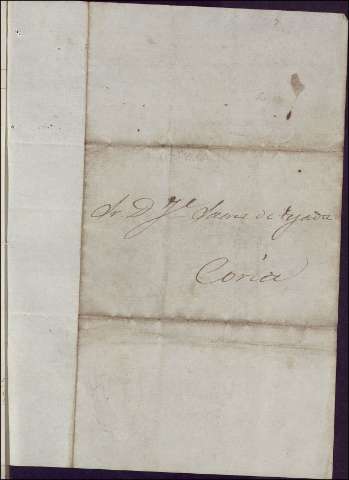 Sr. D. J.e Saenz de Tejada
Coria